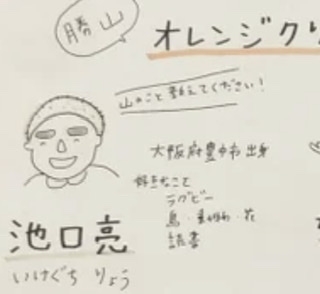 勝山
オレンジクリ
山のこと教えてください!
大阪府豊中市出身
好きなこと
ラグビー
鳥・動物・花
読書
池口亮
いけぐち りょう